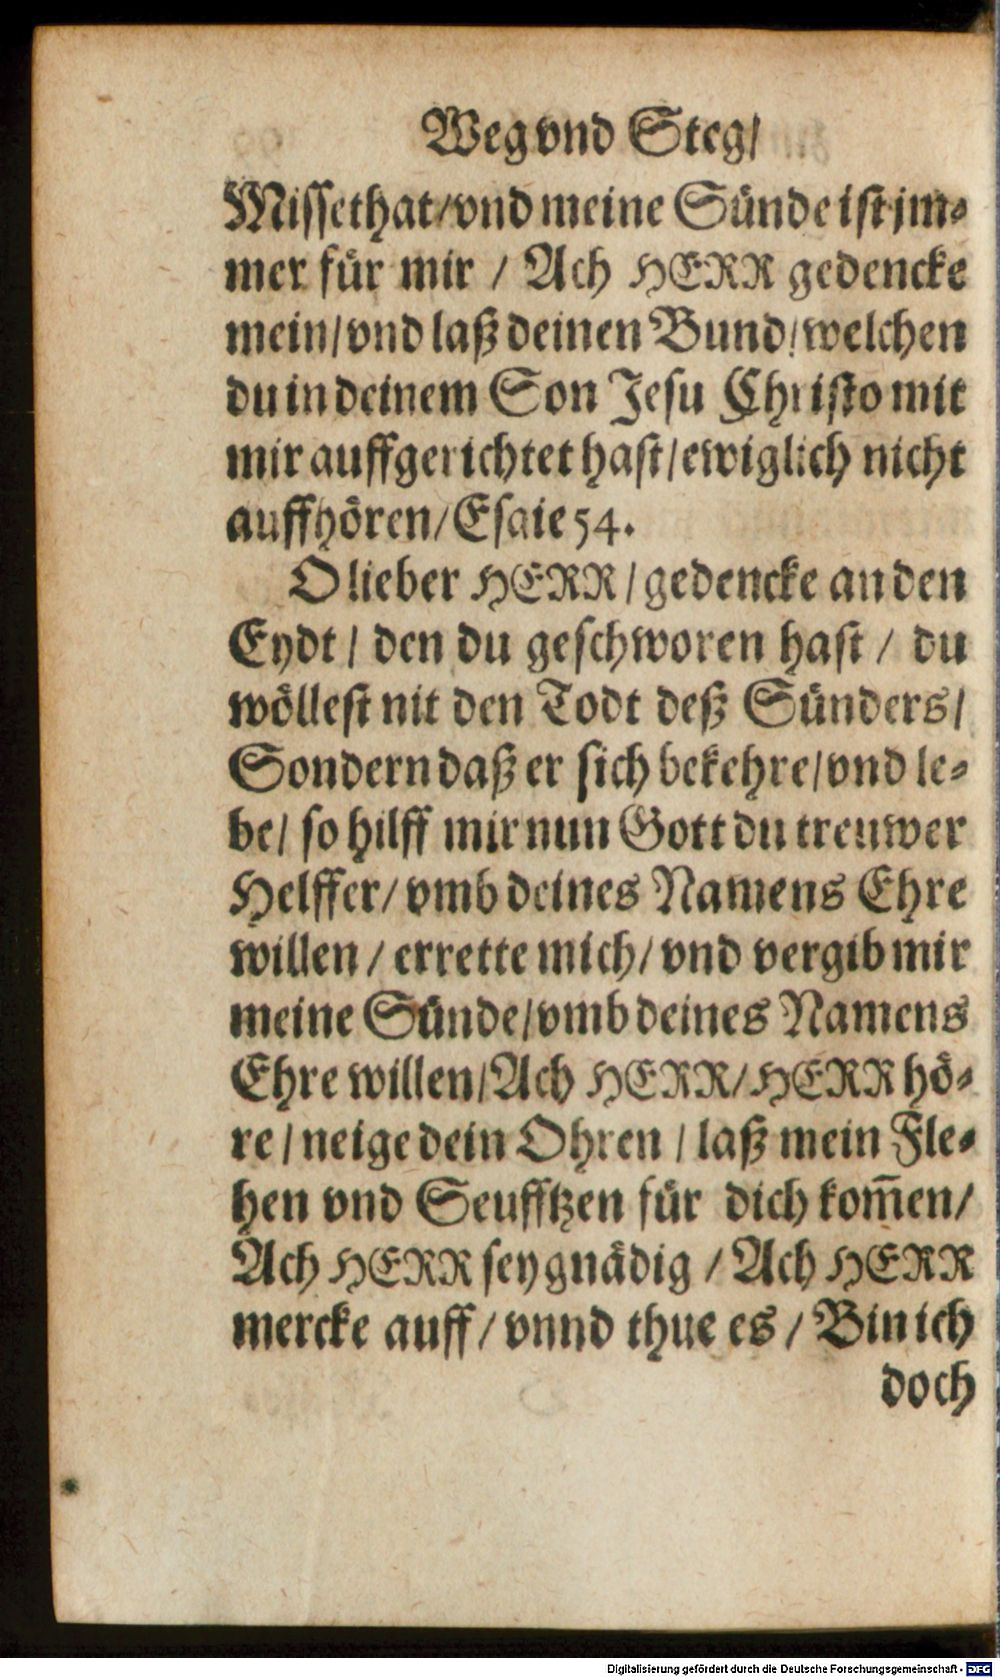 Weg vnd Steg/
Missethat/vnd meine Sünde ist jm⸗
mer für mir / Ach HERR gedencke
mein/vnd laß deinen Bund/welchen
du in deinem Son Jesu Christo mit
mir auffgerichtet hast/ewiglich nicht
auffhören/Esaie 54.
O lieber HERR/gedencke an den
Eydt/ den du geschworen hast / du
wöllest nit den Todt deß Sünders/
Sondern daß er sich bekehre/vnd le⸗
be/ so hilff mir nun Gott du treuwer
Helffer/vmb deines Namens Ehre
willen / errette mich/ vnd vergib mir
meine Sünde/vmb deines Namens
Ehre willen/Ach HERR/HERR hö⸗
re/neige dein Ohren / laß mein Fle⸗
hen vnd Seufftzen für dich kom̄en/
Ach HERR sey gnädig / Ach HERR
mercke auff/vnnd thue es/Bin ich
doch
Digitalisierung gefördert durch die Deutsche Forschungsgemeinschaft - DFG